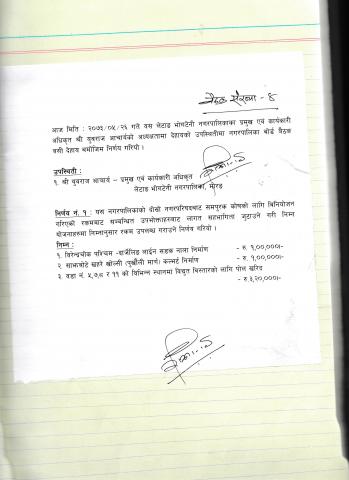 बैठक संख्या - ४
आज मिति : २०७३/०५/२६ गते यस लेटाङ भोगटेनी नगरपालिकाका प्रमुख एवं कार्यकारी
अधिकृत श्री युवराज आचार्यको अध्यक्षतामा देहायको उपस्थितीमा नगरपालिका बोर्ड बैठक
बसी देहाय बमोजिम निर्णय गरियो ।
उपस्थिती :
१ श्री युवराज आचार्य – प्रमुख एवं कार्यकारी अधिकृत
लेटाङ भोगटेनी नगरपालिका, मोरङ
निर्णय नं. १ : यस नगरपालिकाको दोस्रो नगरपरिषदबाट समपुरक कोषको लागि बिनियोजन
गरिएको रकमबाट सम्बन्धित उपभोक्ताहरुबाट लागत सहभागिता जुटाउने गरी निम्न
योजनाहरुमा निम्नानुसार रकम उपलब्ध गराउने निर्णय गरियो ।
निम्न :
१. विरेन्द्रचोक पश्चिम -दार्जेलिङ लाईन सडक नाला निर्माण - रु १,००,०००/-
२. साझबोटे खहरे खोल्सी (पुर्खौली मार्ग) कल्भर्ट निर्माण - रु. १,००,०००/-
३. वडा नं. ५,७,८ र ११ को विभिन्न स्थानमा विद्युत बिस्तारको लागि पोल खरिद
- रु.३,२०,०००/-